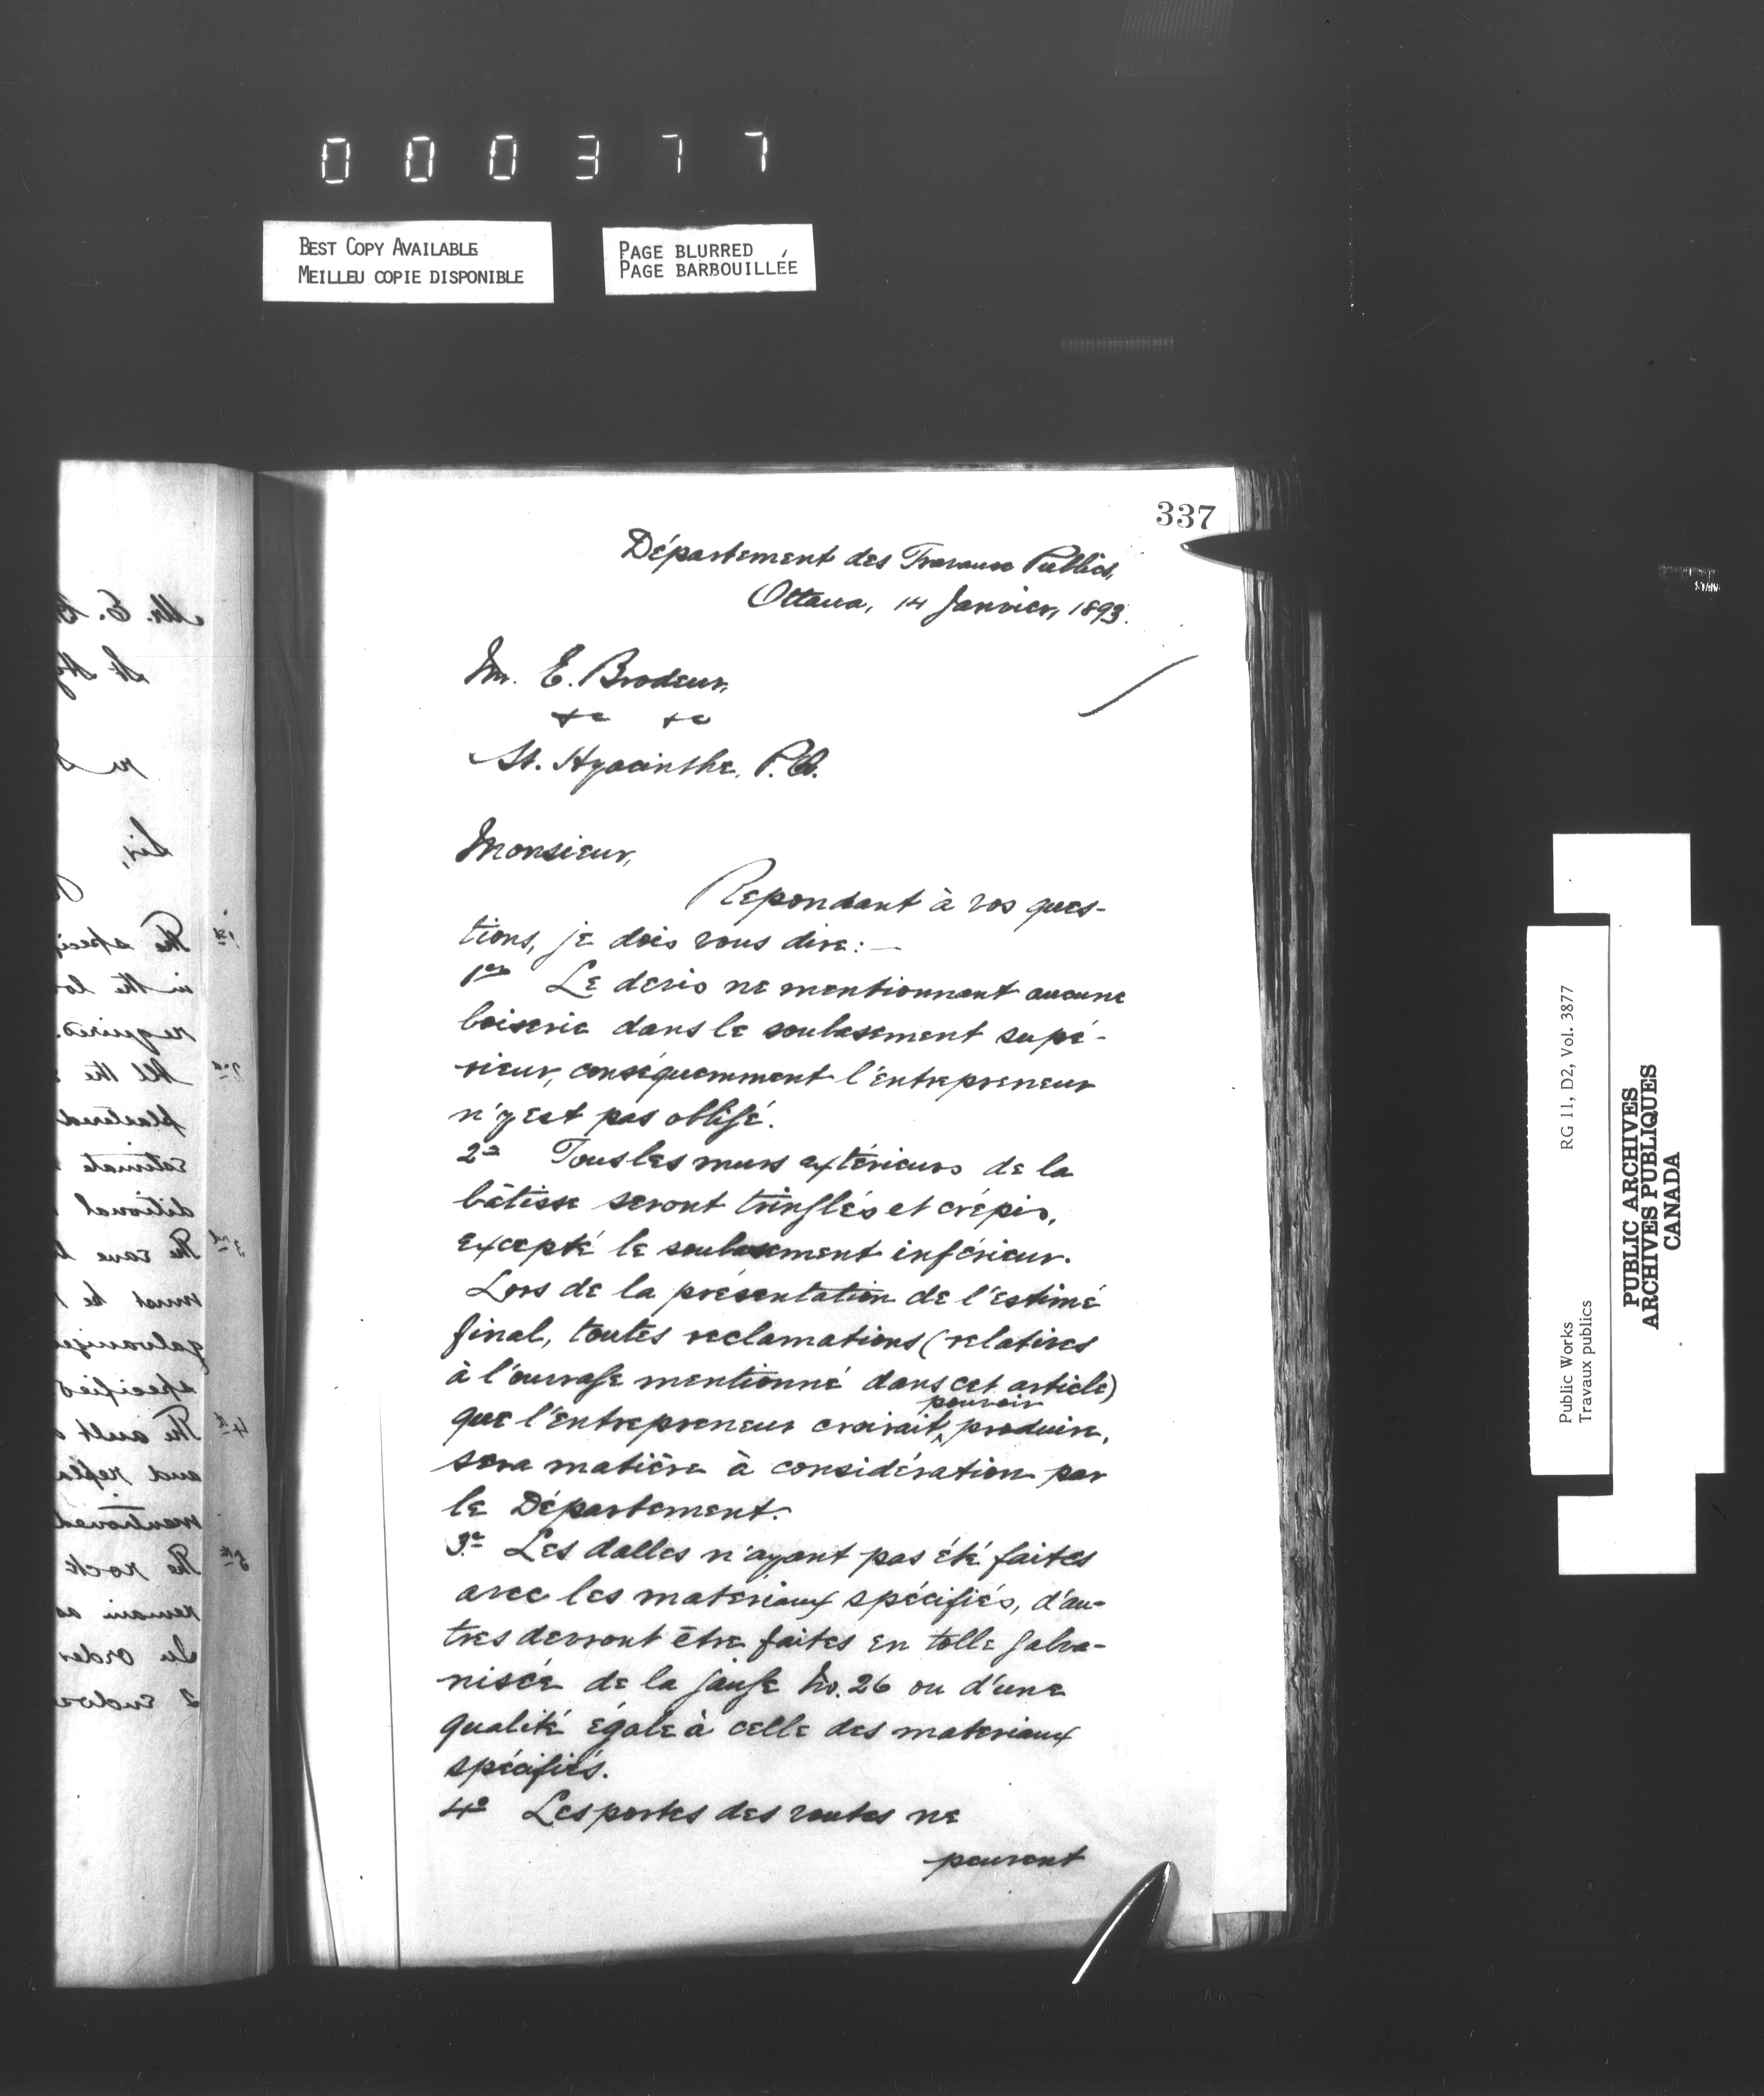 000377
BEST COPY AVAILABLE
MEILLEU COPIE DISPONIBLE
PAGE BLURRED
PAGE BARBOUILLÉE
337
Département des Travaux Publics,
Ottawa, 14 Janvier, 1893.
Mr. E. Brodeur,
&c &c
St. Hyacinthe, P.Q.
Monsieur,
Repondant à vos ques-
tions, je dois vous dire:—
1er Le devis ne mentionnant aucune
boiserie dans le soubasement supé-
rieur, conséquemment l'entrepreneur
n'y est pas obligé.
2e Tous les murs extérieurs de la
bâtisse seront tringlés et crépis,
excepté le soubasement inférieur.
Lors de la présentation de l'estimé
final, toutes reclamations (relatives
à l'ouvrage mentionné dans cet article)
que l'entrepreneur croirait pouvoir produire,
sera matière à considération par
le Département.
3e Les dalles n'ayant pas été faites
avec les materiaux spécifiés, d'au-
tres devront être faites en tolle galva-
nisée de la jauge No. 26 ou d'une
qualité égale à celle des materiaux
spécifiés.
4e Les portes des voutes ne
peuvent
Mr. E.
St Hy
Sir,
1st The speci
in the
required.
2nd All the
plastered
estimate
ditional
3rd The eave
must be
galvanize
specified
4th The
and
mentioned
5th The rock
remain as
order
Public Works
Travaux publics
RG 11, D2, Vol. 3877
PUBLIC ARCHIVES
ARCHIVES PUBLIQUES
CANADA